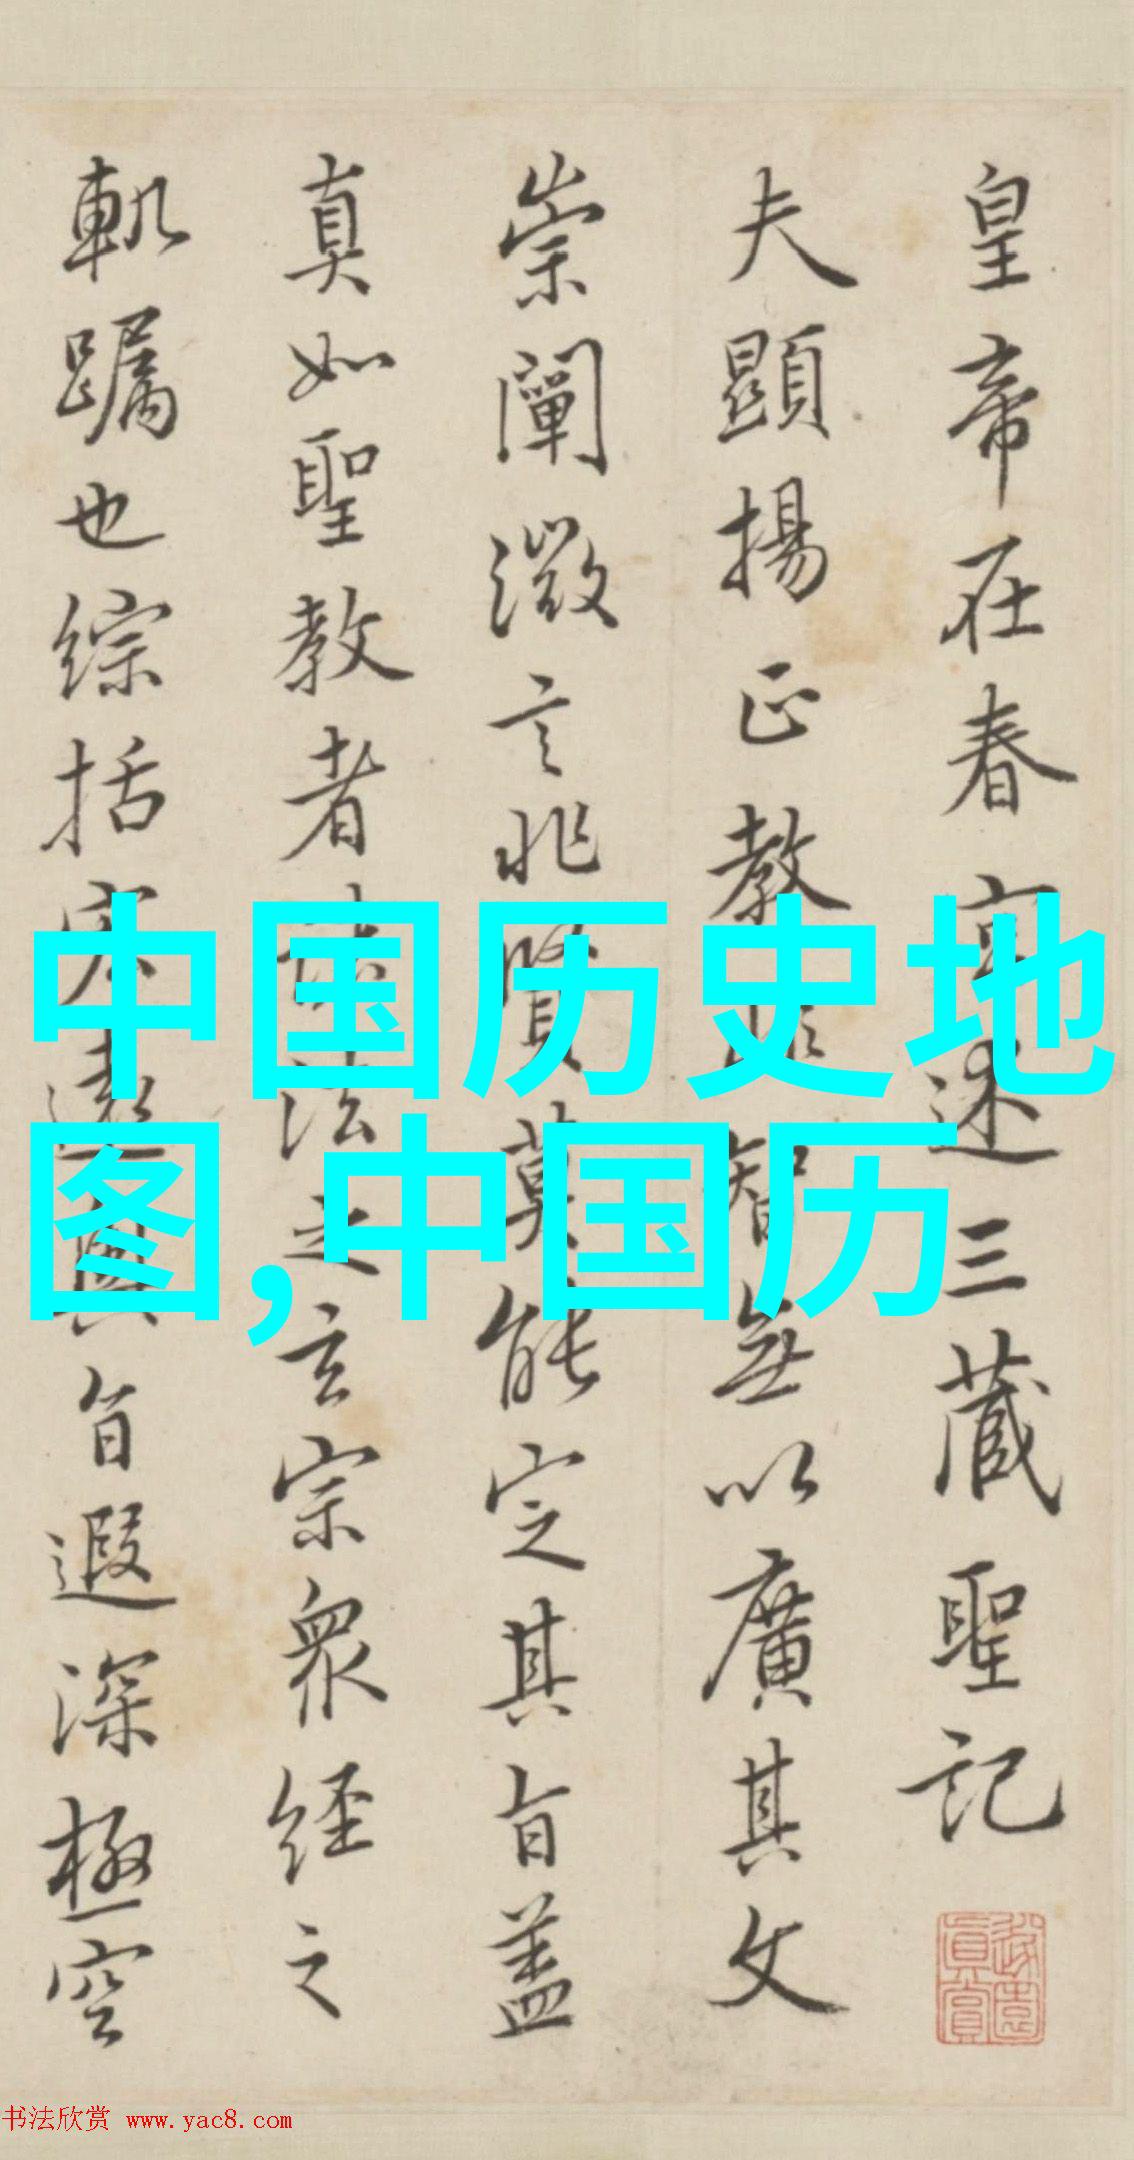 皇帝在春宮述三藏聖記
夫顯揚正教非智無以廣其文
崇闡微言非賢莫能定其旨蓋
真如聖教者諸法之玄宗衆經之
軌躅也綜括宏遠奧旨遐深極空
中国历史地
图,中国历
书法欣赏 www.yac8.com